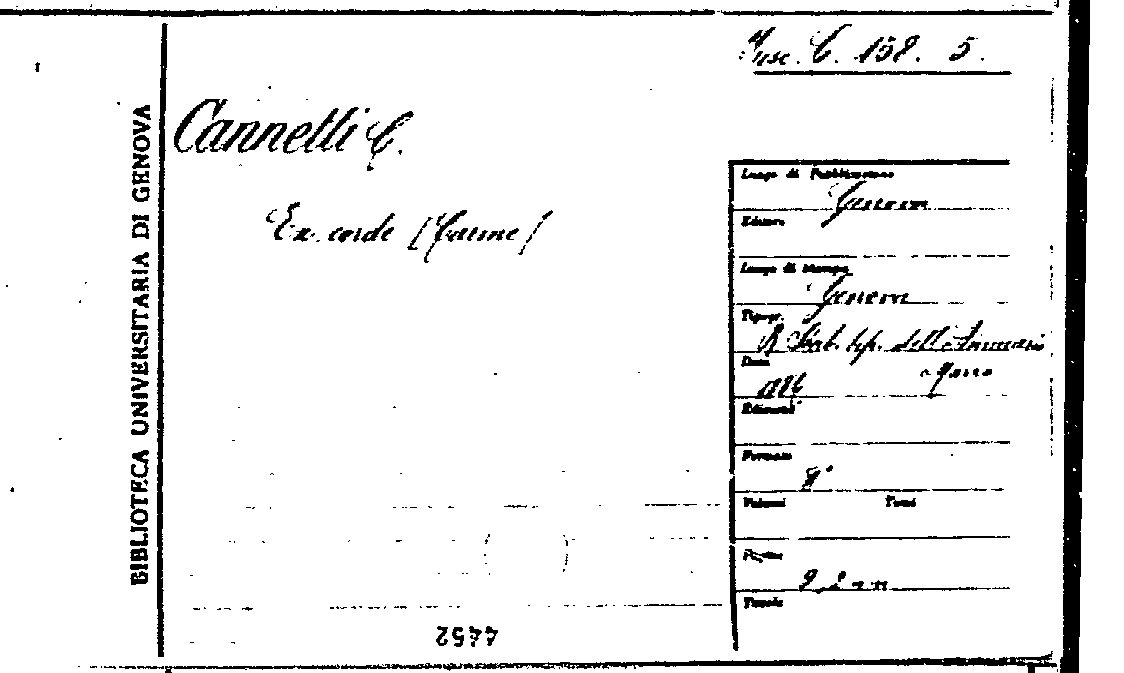 Misc. C. 158. 5.
BIBLIOTECA UNIVERSITARIA DI GENOVA
Cannetti C.
Ex corde (Carme)
Luogo di Pubblicazione
Genova
Editore
Luogo di stampa
Genova
Tipogr.
R Stab. tip. dell'Annuario
Data
1886
Edizione
Formato
8°
Volumi Tomi
Pagine
9, 2 n n
Tavole
4452